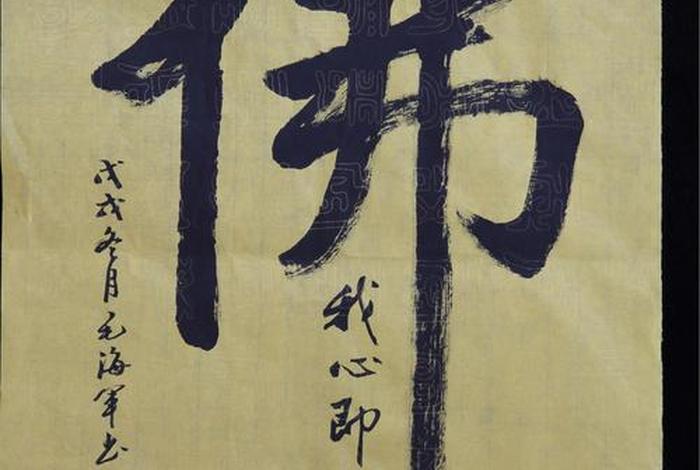 佛
我心即
戊戌冬月毛海军书